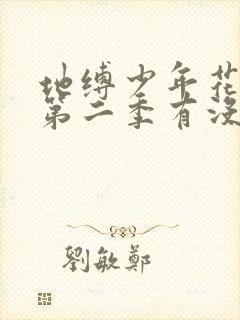 地缚少年花
第二季有没
劉敏鄭